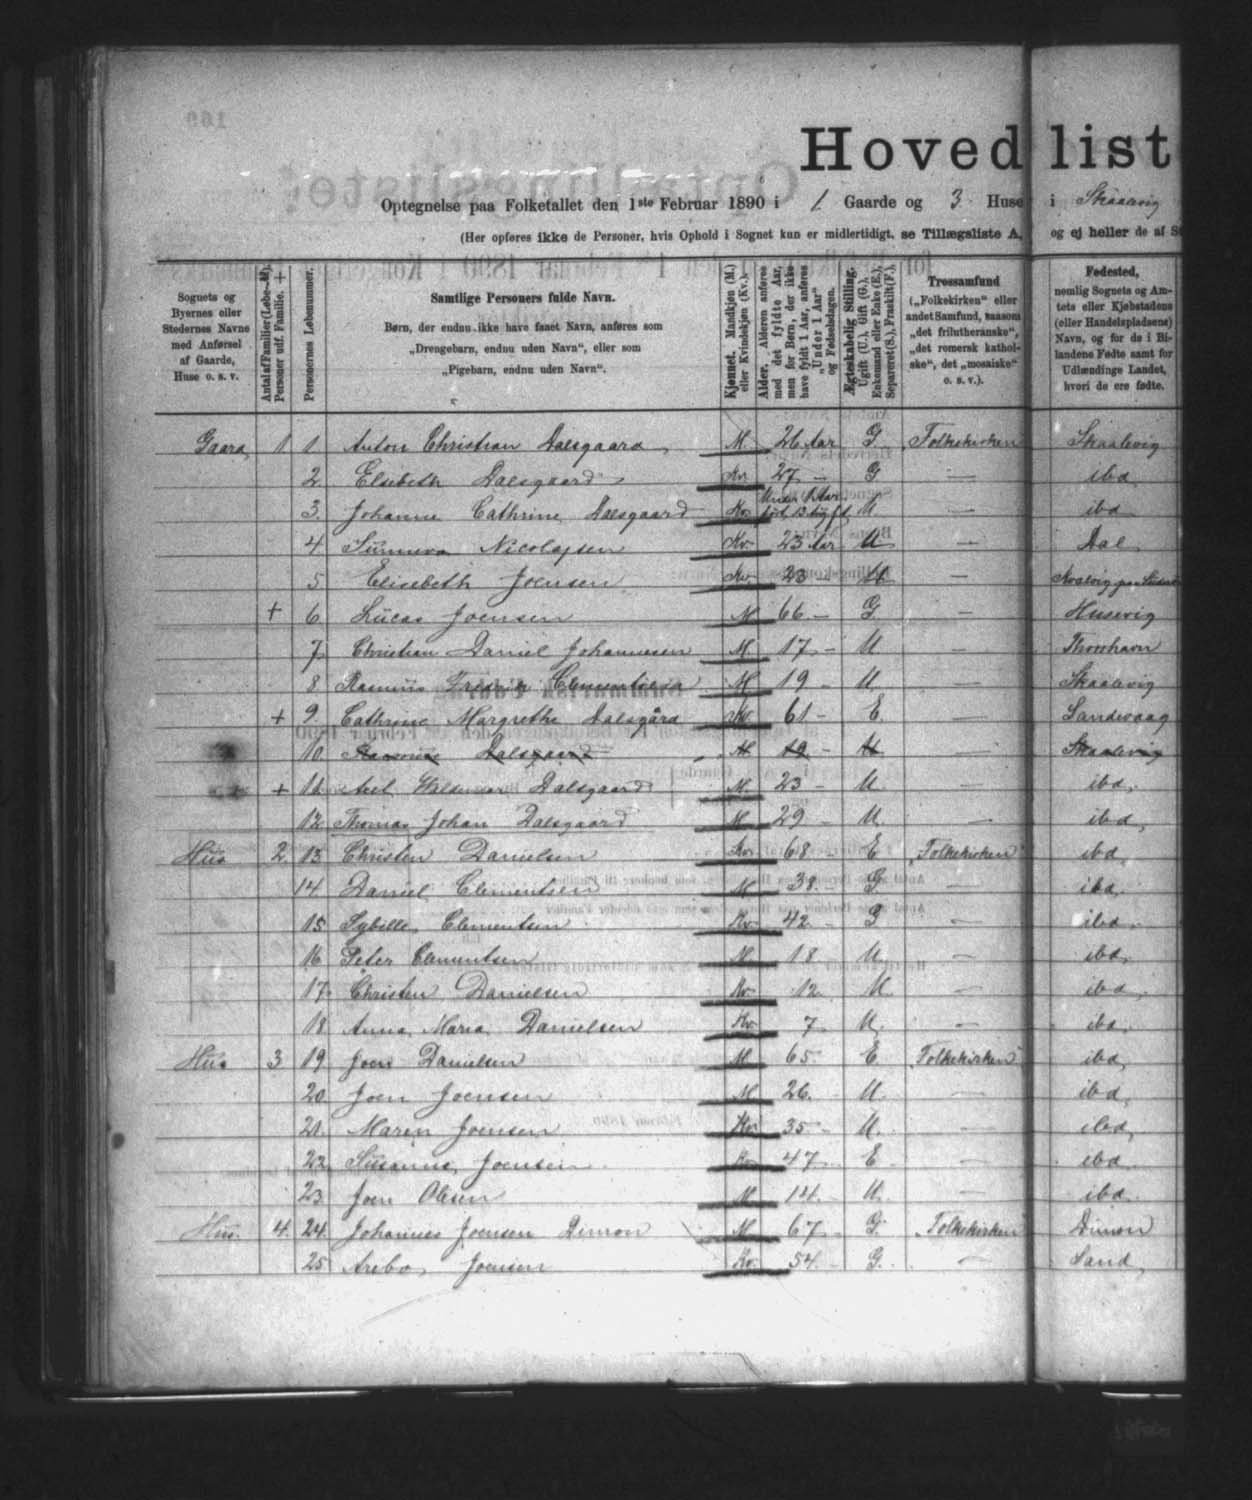 Hovedlist
Optegnelse paa Folketallet den 1ste Februar 1890 i 1 Gaarde og 3 Huse i Skaalevig
(Her opføres ikke de Personer, hvis Ophold i Sognet kun er midlertidigt, se Tillægsliste A, og ej heller de af S
Sognets og Byernes eller Stedernes Navne med Anførsel af Gaarde, Huse o. s. v.
Antal af Familier (Løbe-№). Personer udf. Familie. +
Personernes Løbenummer.
Samtlige Personers fulde Navn.
Børn, der endnu ikke have faaet Navn, anføres som „Drengebarn, endnu uden Navn“, eller som „Pigebarn, endnu uden Navn“.
Kjønnet. Mandkjøn (M.) eller Kvindekjøn (Kv.).
Alder. Alderen anføres med det fyldte Aar, men for Børn, der ikke have fyldt 1 Aar, anføres „Under 1 Aar“ og Fødselsdagen.
Ægteskabelig Stilling. Ugift (U.), Gift (G.), Enkemand eller Enke (E.), Separeret (S.), Fraskilt (F.).
Trossamfund („Folkekirken“ eller andet Samfund, saasom „det frilutheranske“, „det romersk katholske“, det „mosaiske“ o. s. v.).
Fødested, nemlig Sognets og Amtets eller Kjøbstadens (eller Handelspladsens) Navn, og for de i Bilandene Fødte samt for Udlændinge Landet, hvori de ere fødte.
Gaard, 1 1. Anton Christian Dalsgaard M. 26 Aar G. Folkekirken Skaalevig
2. Elsebeth Dalsgaard Kv. 27 – G. — ibd
3. Johanne Cathrine Dalsgaard Kv. Under 1 Aar. U — ibd
4 Sunneva Nicolajsen Kv. 23 Aar U — Dal
5 Elisebeth Joensen Kv. 23 – U —
+ 6. Lucas Joensen M 66 – G. — Husevig
7. Christian Daniel Johannesen M. 17 – U — Thorshavn
8 Rasmus Fredrik Clementsen M. 19 – U. — Skaalevig
+ 9. Cathrine Margrethe Dalsgård Kv. 61 – E. — Sandevaag
10. Dalsgaard M 19 – U — Skaalevig
+ 11. Waldemar Dalsgaard M. 23 – U — ibd.
12. Thomas Johan Dalsgaard M. 29 – U. — ibd,
Hus 2. 13. Christen Danielsen Kv. 68 – E „Folkekirken“ ibd
14. Daniel Clementsen M 38. – G — ibd.
15. Sybille, Clementsen Kv. 42 – G — ibd.
16. Peter Clementsen M. 18 U. — ibd.
17. Christen Danielsen Kv. 12 U — ibd.
18. Anna Maria Danielsen Kv. 7 U. — ibd.
Hus 3 19. Joen Danielsen M. 65. – E. „Folkekirken“ ibd,
20. Joen Joensen M. 26. – U. — ibd,
21. Maren Joensen Kv. 35 – U. — ibd,
22. Susanne, Joensen Kv. 47 – E — ibd
23. Joen Olsen M. 14. – U. — ibd.
Hus. 4. 24. Johannes Joensen Dimon M. 67 – G. „Folkekirken“ Dimon
25. Joensen Kv. 54. – G. — Sand,